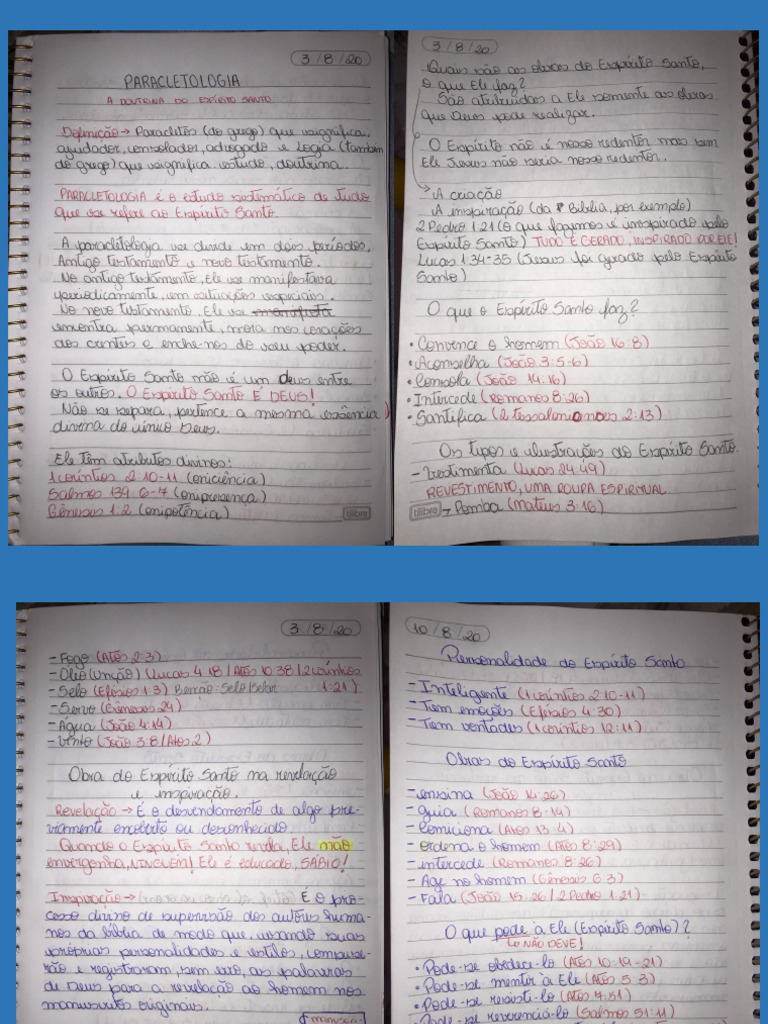 3/8/20
PARACLETOLOGIA
A DOUTRINA DO ESPÍRITO SANTO
Definição → Paracletos (do grego) que significa,
ajudador, consolador, advogado e logia (também
do grego) que significa estudo, doutrina.
PARACLETOLOGIA é o estudo sistemático de tudo
que se refere ao Espírito Santo.
A paracletologia se divide em dois períodos,
Antigo testamento e novo testamento.
No antigo testamento, Ele se manifestava
periodicamente, em situações especiais.
No novo testamento, Ele se manifesta
encontra permanente, mora nos corações
dos crentes e enche-nos do seu poder.
O Espírito Santo não é um Deus entre
os outros. O Espírito Santo É DEUS!
Não se separa, pertence a mesma essência
divina do único Deus.
Ele têm atributos divinos:
1 coríntios 2:10-11 (oniciência)
Salmos 139:6-7 (onipresença)
Gênesis 1:2 (onipotência)
tilibra
3/8/20
Quais são as obras do Espírito Santo,
o que Ele faz?
São atribuídas a Ele somente as obras
que Deus pode realizar.
O Espírito não é nosso redentor mas sem
Ele Jesus não seria nosso redentor.
→ A criação
A inspiração (da Bíblia, por exemplo)
2 Pedro 1:21 (o que fazemos é inspirado pelo
Espírito Santo) TUDO É GERADO, INSPIRADO POR ELE!
Lucas 1:34-35 (Jesus foi gerado pelo Espírito
Santo)
O que o Espírito Santo faz?
• Convence o homem (João 16:8)
• Aconselha (João 3:5-6)
• Consola (João 14:16)
• Intercede (Romanos 8:26)
• Santifica (2 tessalonicenses 2:13)
Os tipos e ilustrações do Espírito Santo.
- Vestimenta (Lucas 24:49)
REVESTIMENTO, UMA ROUPA ESPIRITUAL
tilibra - Pomba (Mateus 3:16)
3/8/20
- Fogo (Atos 2:3)
- Óleo (Unção) (Lucas 4:18 / Atos 10:38 / 2 coríntios
- Selo (Efésios 1:3) 1:21)
- Servo (Gênesis 24)
- Água (João 4:14)
- Vento (João 3:8 / Atos 2)
Obra do Espírito Santo na revelação
e inspiração.
Revelação → É o desvendamento de algo pre-
viamente encoberto ou desconhecido.
Quando o Espírito Santo revela, Ele não
envergonha, NINGUÉM! Ele é educado, SÁBIO!
Inspiração → É o pro-
cesso divino de supervisão dos autores huma-
nos da bíblia de modo que, usando suas
próprias personalidades e estilos, compuse-
rão e registraram, sem erro, as palavras
de Deus para a revelação ao homem nos
manuscritos originais.
10/8/20
Personalidade do Espírito Santo
- Inteligente (1 coríntios 2:10-11)
- Tem emoções (Efésios 4:30)
- Tem vontades (1 coríntios 12:11)
Obras do Espírito Santo
- ensina (João 14:26)
- guia (Romanos 8:14)
- Comiciona (Atos 13:4)
- ordena o homem (Atos 8:29)
- intercede (Romanos 8:26)
- Age no homem (Gênesis 6:3)
- Fala (João 15:26 / 2 Pedro 1:21)
O que pode à Ele (Espírito Santo)?
↳ NÃO DEVE!
• Pode-se obedece-lo (Atos 10:19-21)
• Pode-se mentir à Ele (Atos 5:3)
• Pode-se resisti-lo (Atos 7:51)
• Pode-se reverenciá-lo (Salmos 51:11)